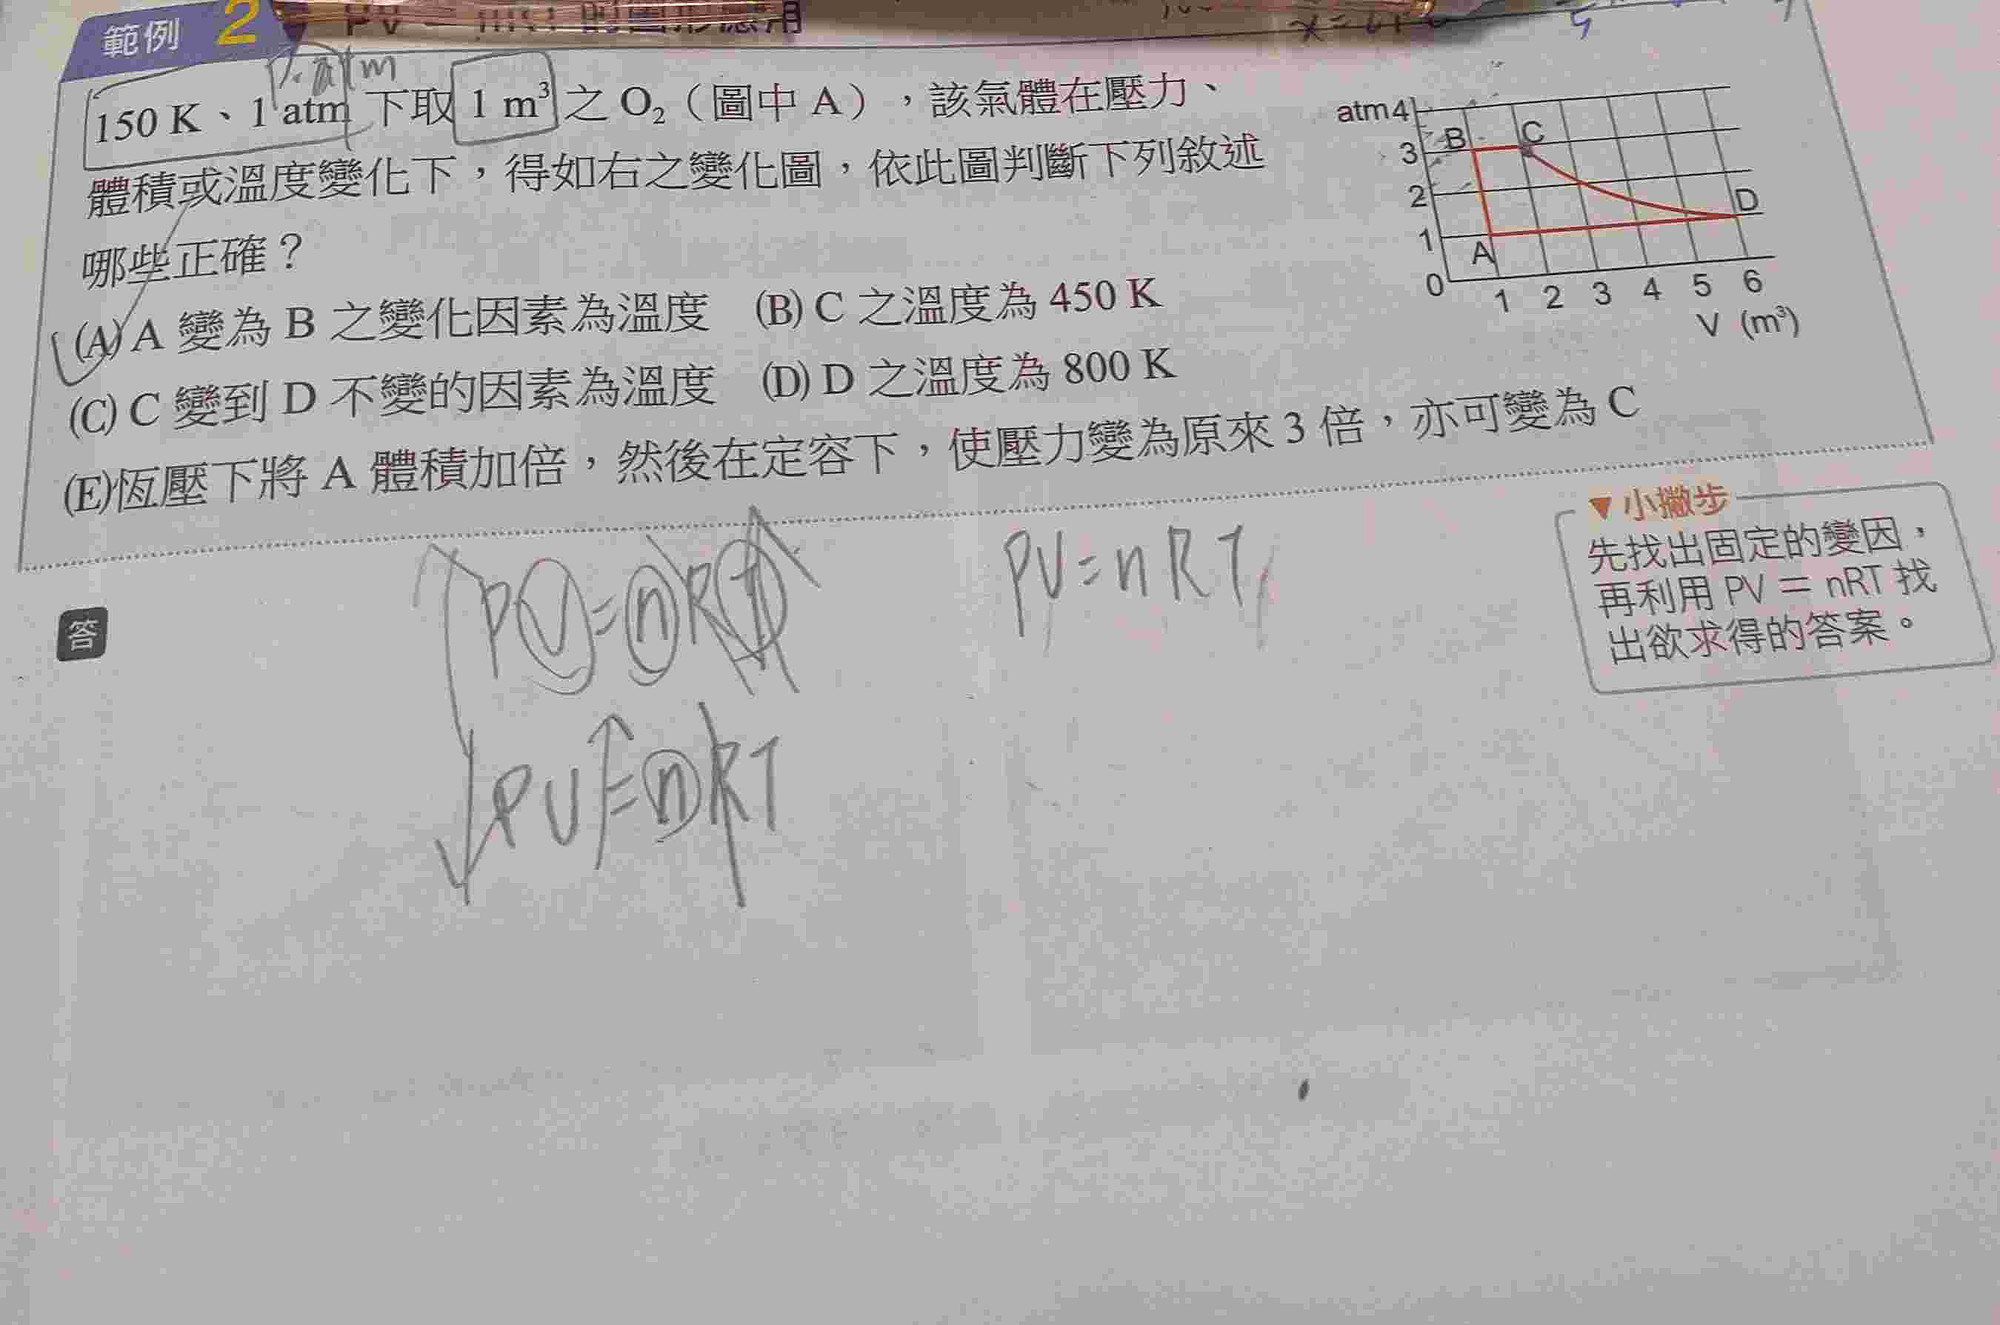 範例 2 PV = nRT 的圖形應用
P.atm
150 K、1 atm 下取 1 m³ 之 O₂（圖中 A），該氣體在壓力、
體積或溫度變化下，得如右之變化圖，依此圖判斷下列敘述
哪些正確？
(A) A 變為 B 之變化因素為溫度 (B) C 之溫度為 450 K
(C) C 變到 D 不變的因素為溫度 (D) D 之溫度為 800 K
(E)恆壓下將 A 體積加倍，然後在定容下，使壓力變為原來 3 倍，亦可變為 C
atm 4
3
2
1
0
B C
A D
1 2 3 4 5 6
V (m³)
▼小撇步
先找出固定的變因，
再利用 PV = nRT 找
出欲求得的答案。
答
PV=nRT PV=nRT
PV=nRT